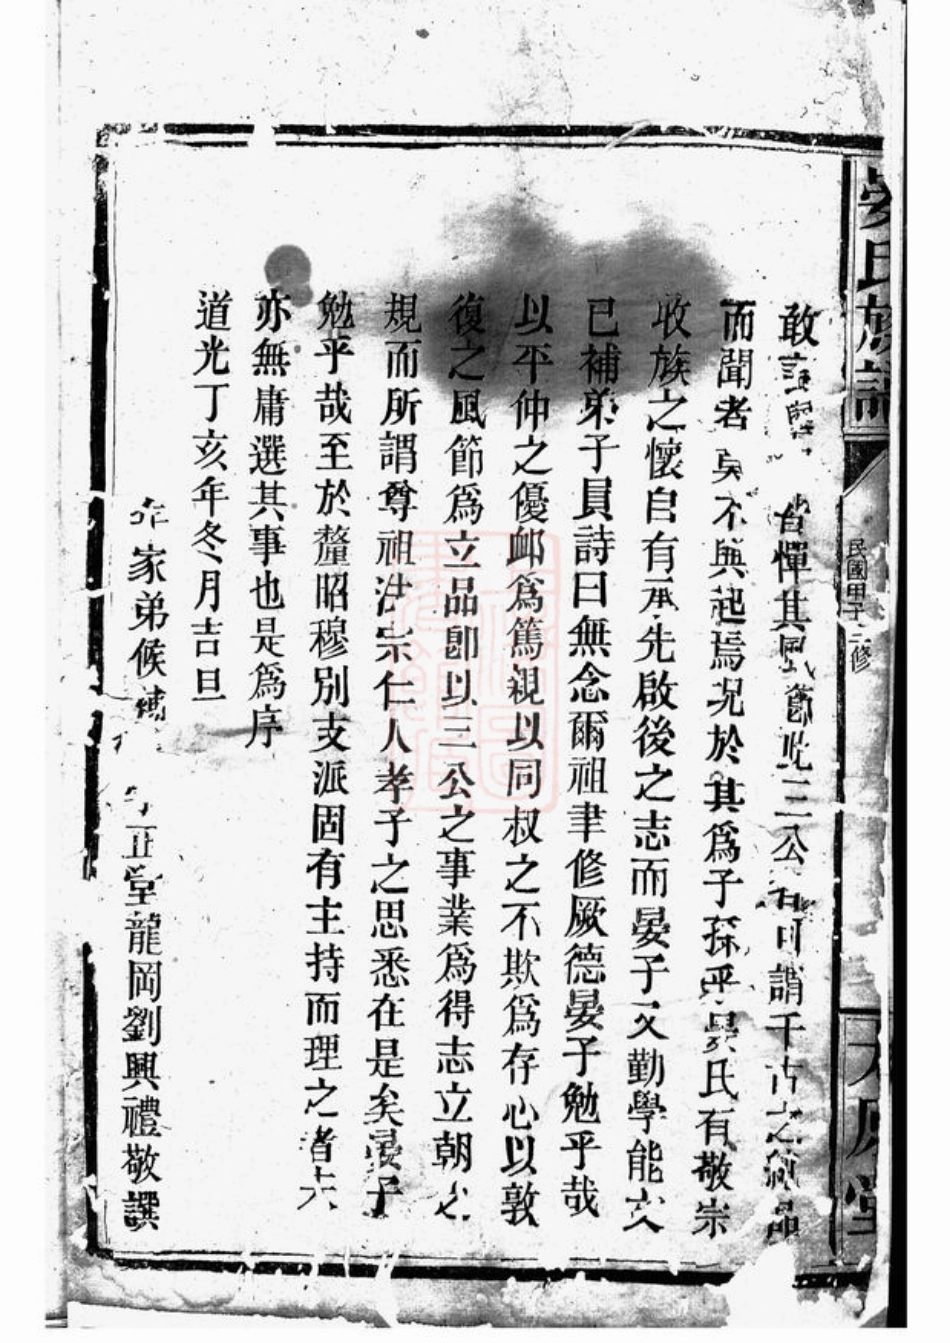 晏氏族譜
民國甲子三修
敢 憚其風節此三公者可謂千古之 品
而聞者莫不興起焉况於其爲子孫乎晏氏有敬宗
收族之懷自有承先啟後之志而晏子又勤學能文
已補弟子員詩曰無念爾祖聿修厥德晏子勉乎哉
以平仲之優邮爲篤親以同叔之不欺爲存心以敦
復之風節爲立品卽以三公之事業爲得志立朝之
規而所謂尊祖法宗仁人孝子之思悉在是矣晏子
勉乎哉至於釐昭穆別支派固有主持而理之者夫
亦無庸選其事也是爲序
道光丁亥年冬月吉旦
年家弟候補 正堂龍岡劉興禮敬譔